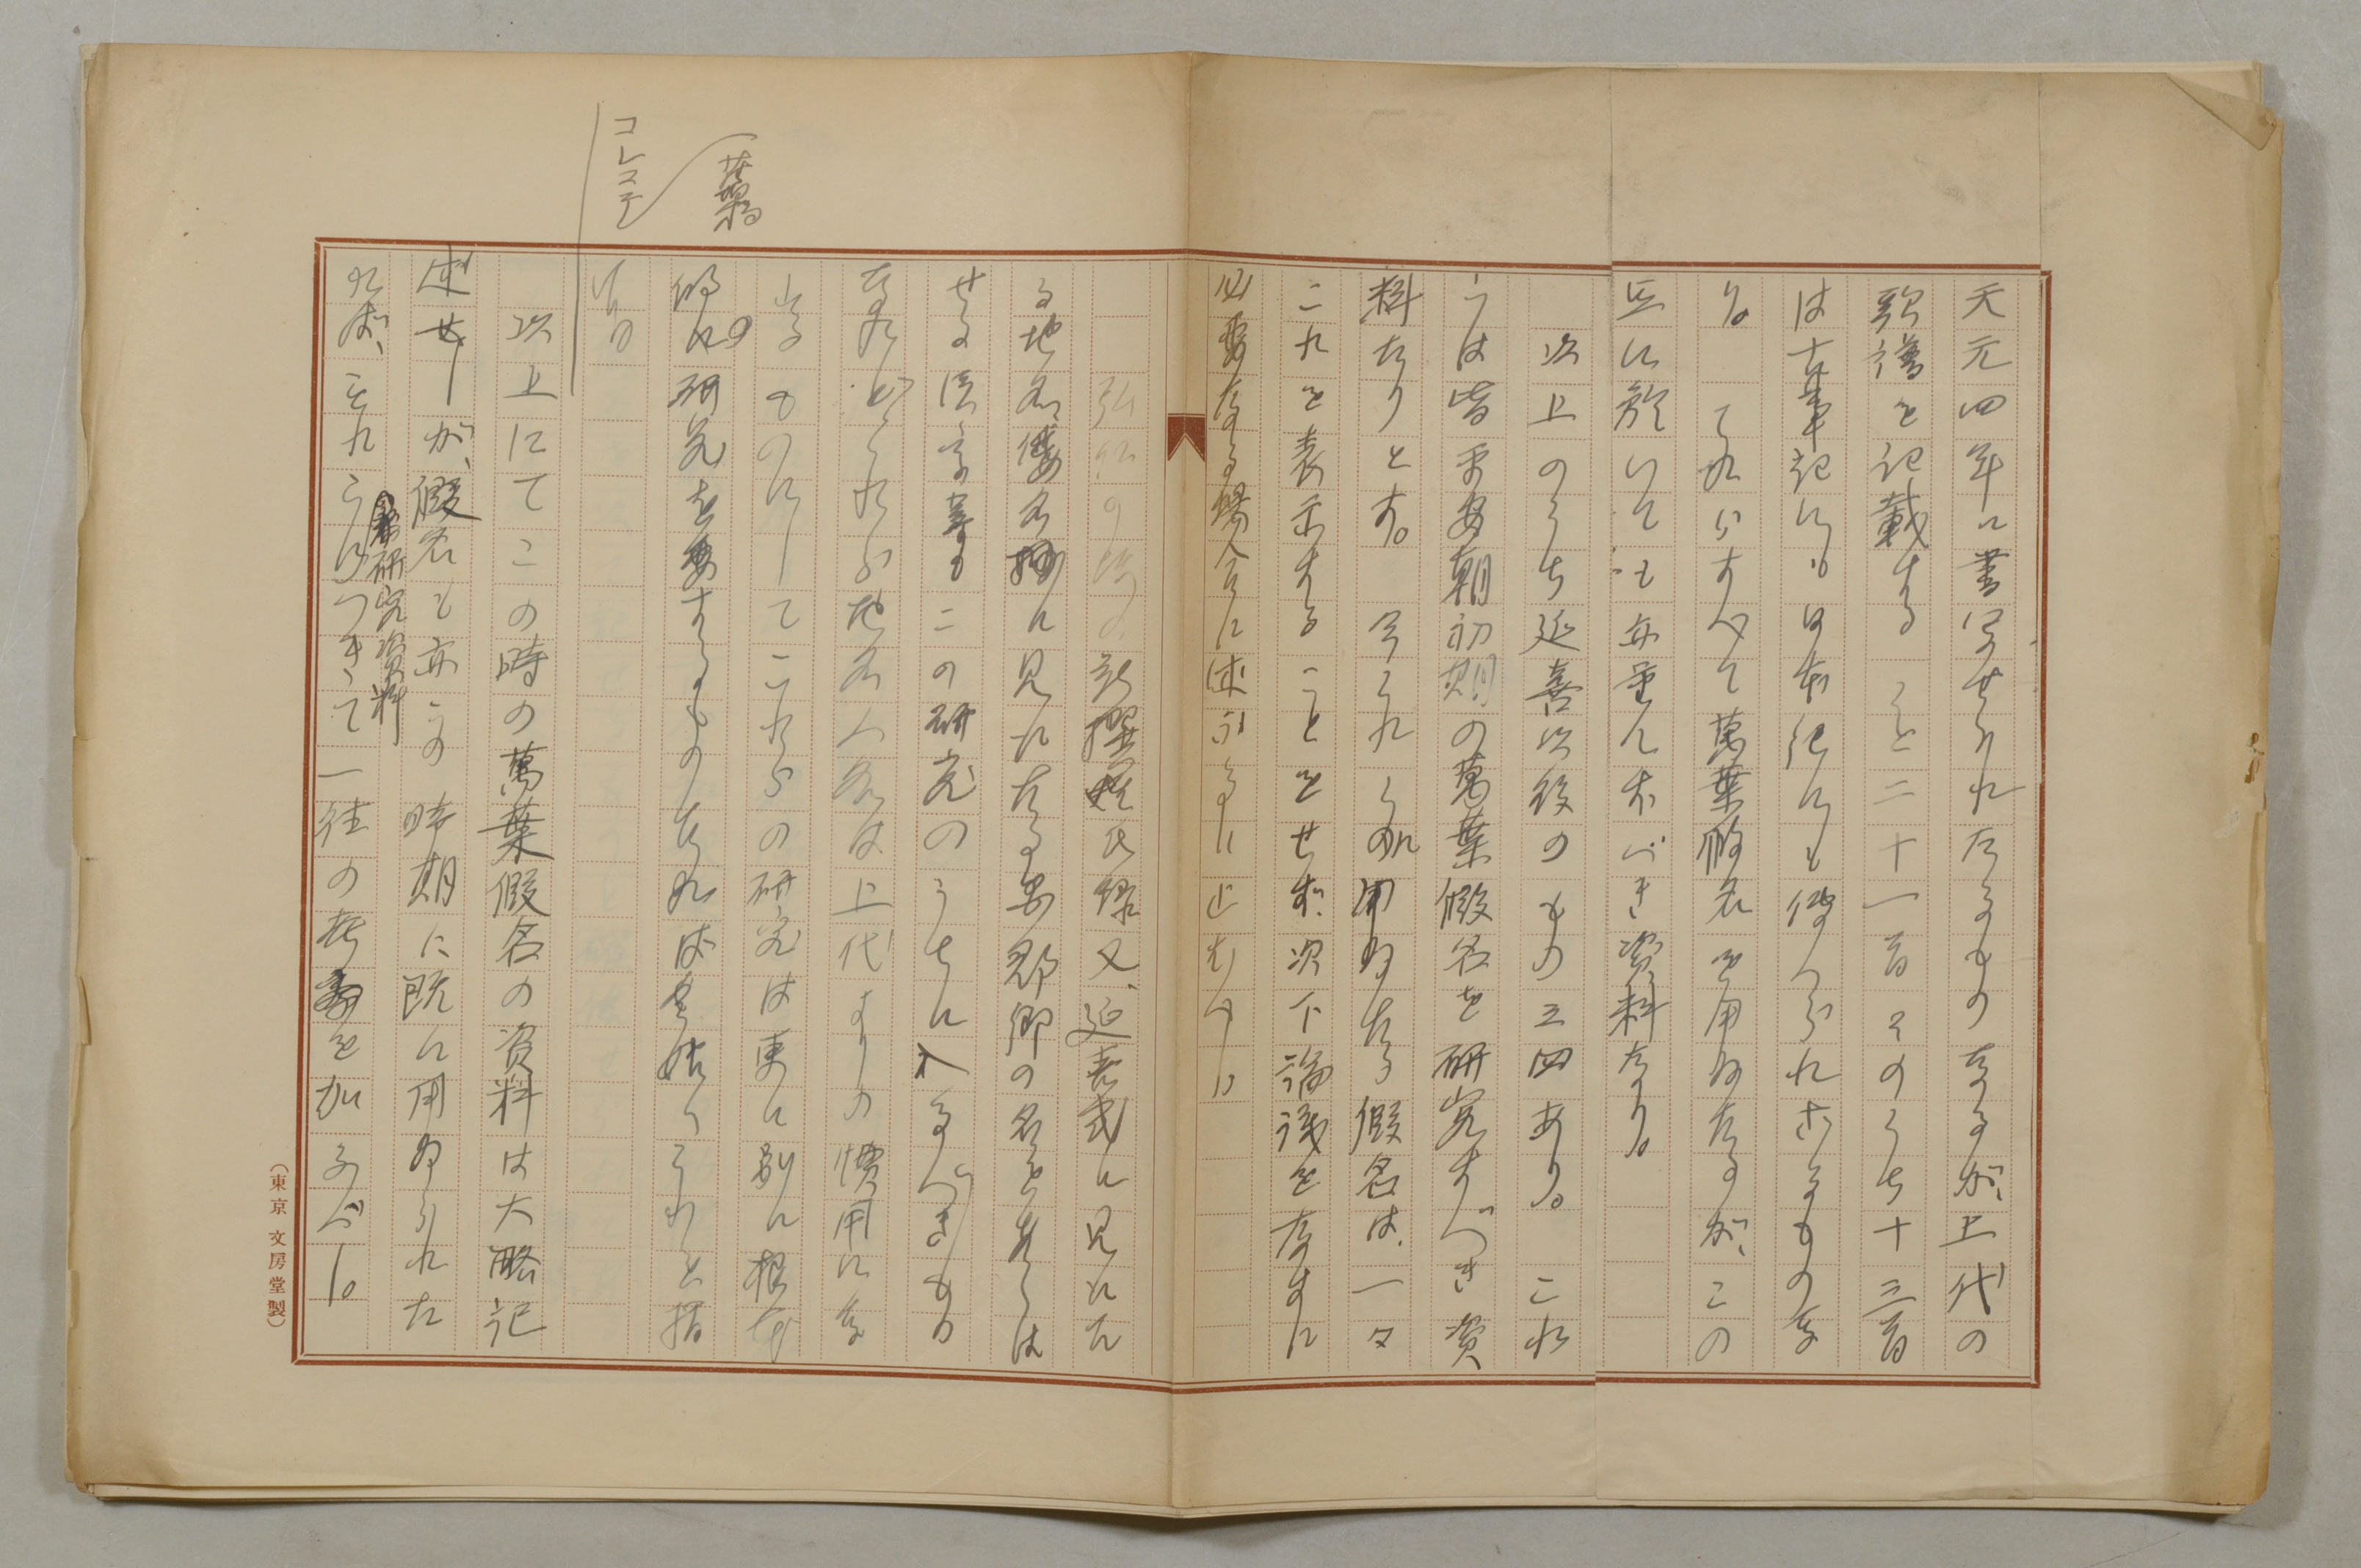 天元四年に書写せられたるものなるが、上代の
歌謡を記載すること二十一首そのうち十三首
は古事記にも日本紀にも伝へられざるものな
り。これはすべて萬葉假名を用ゐたるが、この
点に於いても亦重んずべき資料なり。
以上のうち延喜以後のもの三四あり。これ
らは皆平安朝初期の萬葉假名を研究すべき資
料たりとす。今これらに用ゐたる假名は、一々
これを表示することをせず、次下論議をなすに
必要なる場合に述ぶるに止むべし
弘仁の 新撰姓氏録又、延喜式に見えた
る地名、倭名抄に見えたる国郡郷の名を あらは
せる漢字等もこの研究のうちに入るべきもの
なれどこれら地名人名は上代よりの慣用に
出るものにしてこれらの研究は更に別に根本
的の研究を要するものなれば今姑くこれを措
けり
以上にてこの時の萬葉假名の資料は大略記
述せしが、假名も亦この時期に既に用ゐられた
研究資料
れば、それらにつきて一往の考察を加ふべし。
コレステ